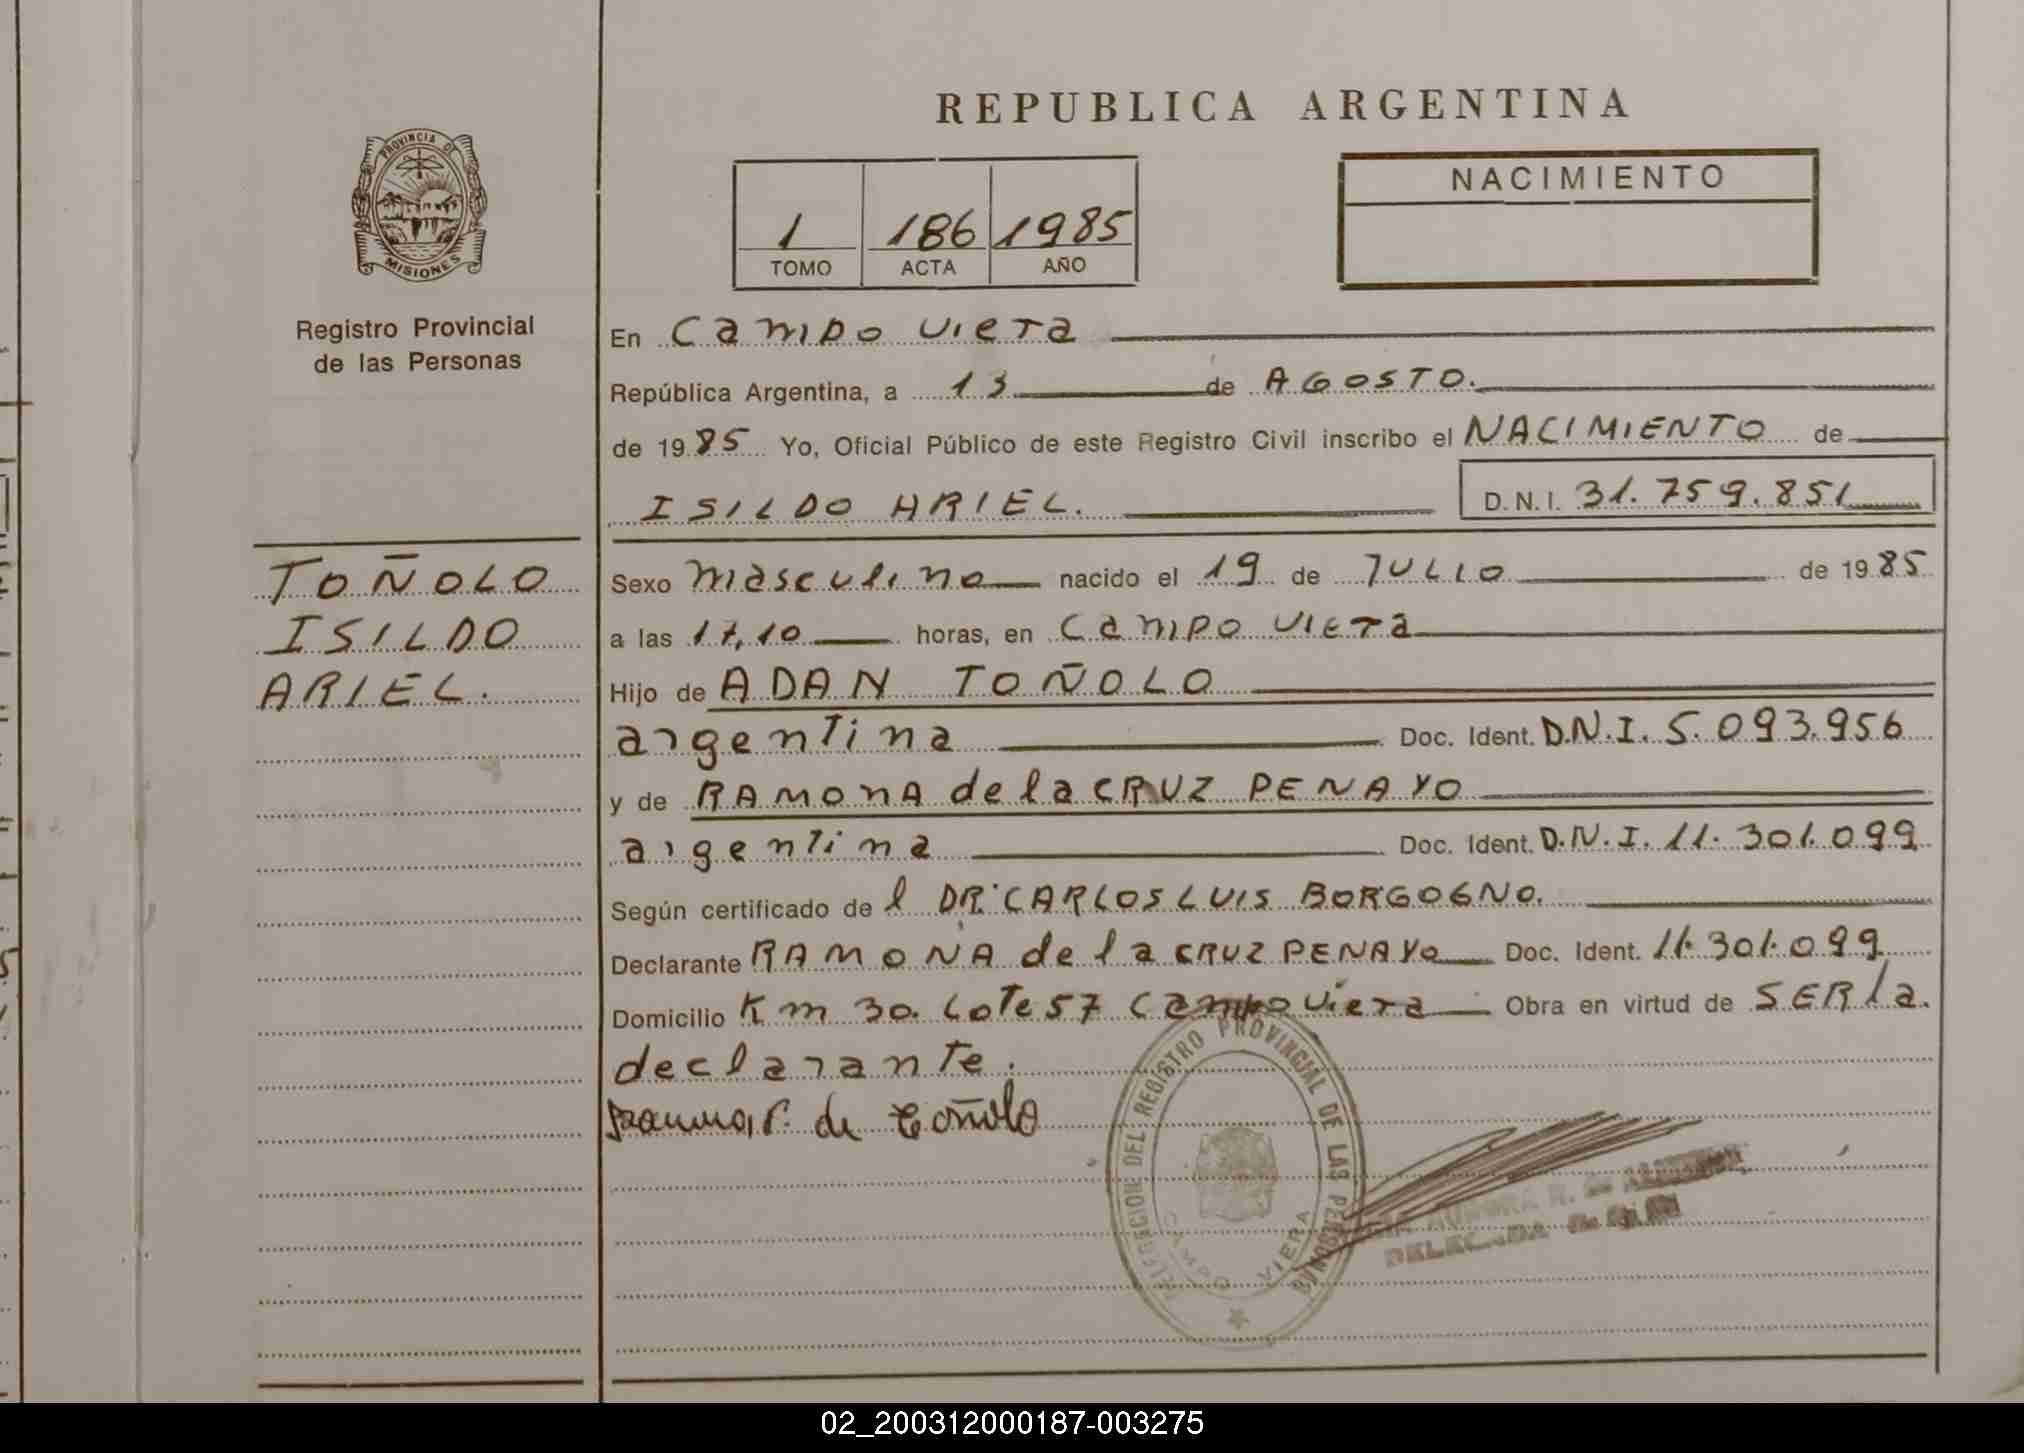 REPUBLICA ARGENTINA
PROVINCIA DE
MISIONES
Registro Provincial
de las Personas
1 186 1985
TOMO ACTA AÑO
NACIMIENTO
En Campo Viera
República Argentina, a 13 de AGOSTO.
de 1985 Yo, Oficial Público de este Registro Civil inscribo el NACIMIENTO de
ISILDO ARIEL. D.N.I. 31.759.851
TOÑOLO
ISILDO
ARIEL.
Sexo masculino nacido el 19 de JULIO de 1985
a las 17,10 horas, en Campo Viera
Hijo de ADAN TOÑOLO
argentina Doc. Ident. D.N.I. 5.093.956
y de RAMONA de la CRUZ PENAYO
argentina Doc. Ident. D.N.I. 11.301.099
Según certificado de l DR. CARLOS LUIS BORGOGNO.
Declarante RAMONA de la CRUZ PENAYO Doc. Ident. 11.301.099
Domicilio Km 30. Lote 57 Campo Viera Obra en virtud de SER la
declarante.
Ramona P. de Toñolo
DELEGACION DEL REGISTRO PROVINCIAL DE LAS PERSONAS
CAMPO VIERA
AURORA R. de
DELEGADA
02_200312000187-003275